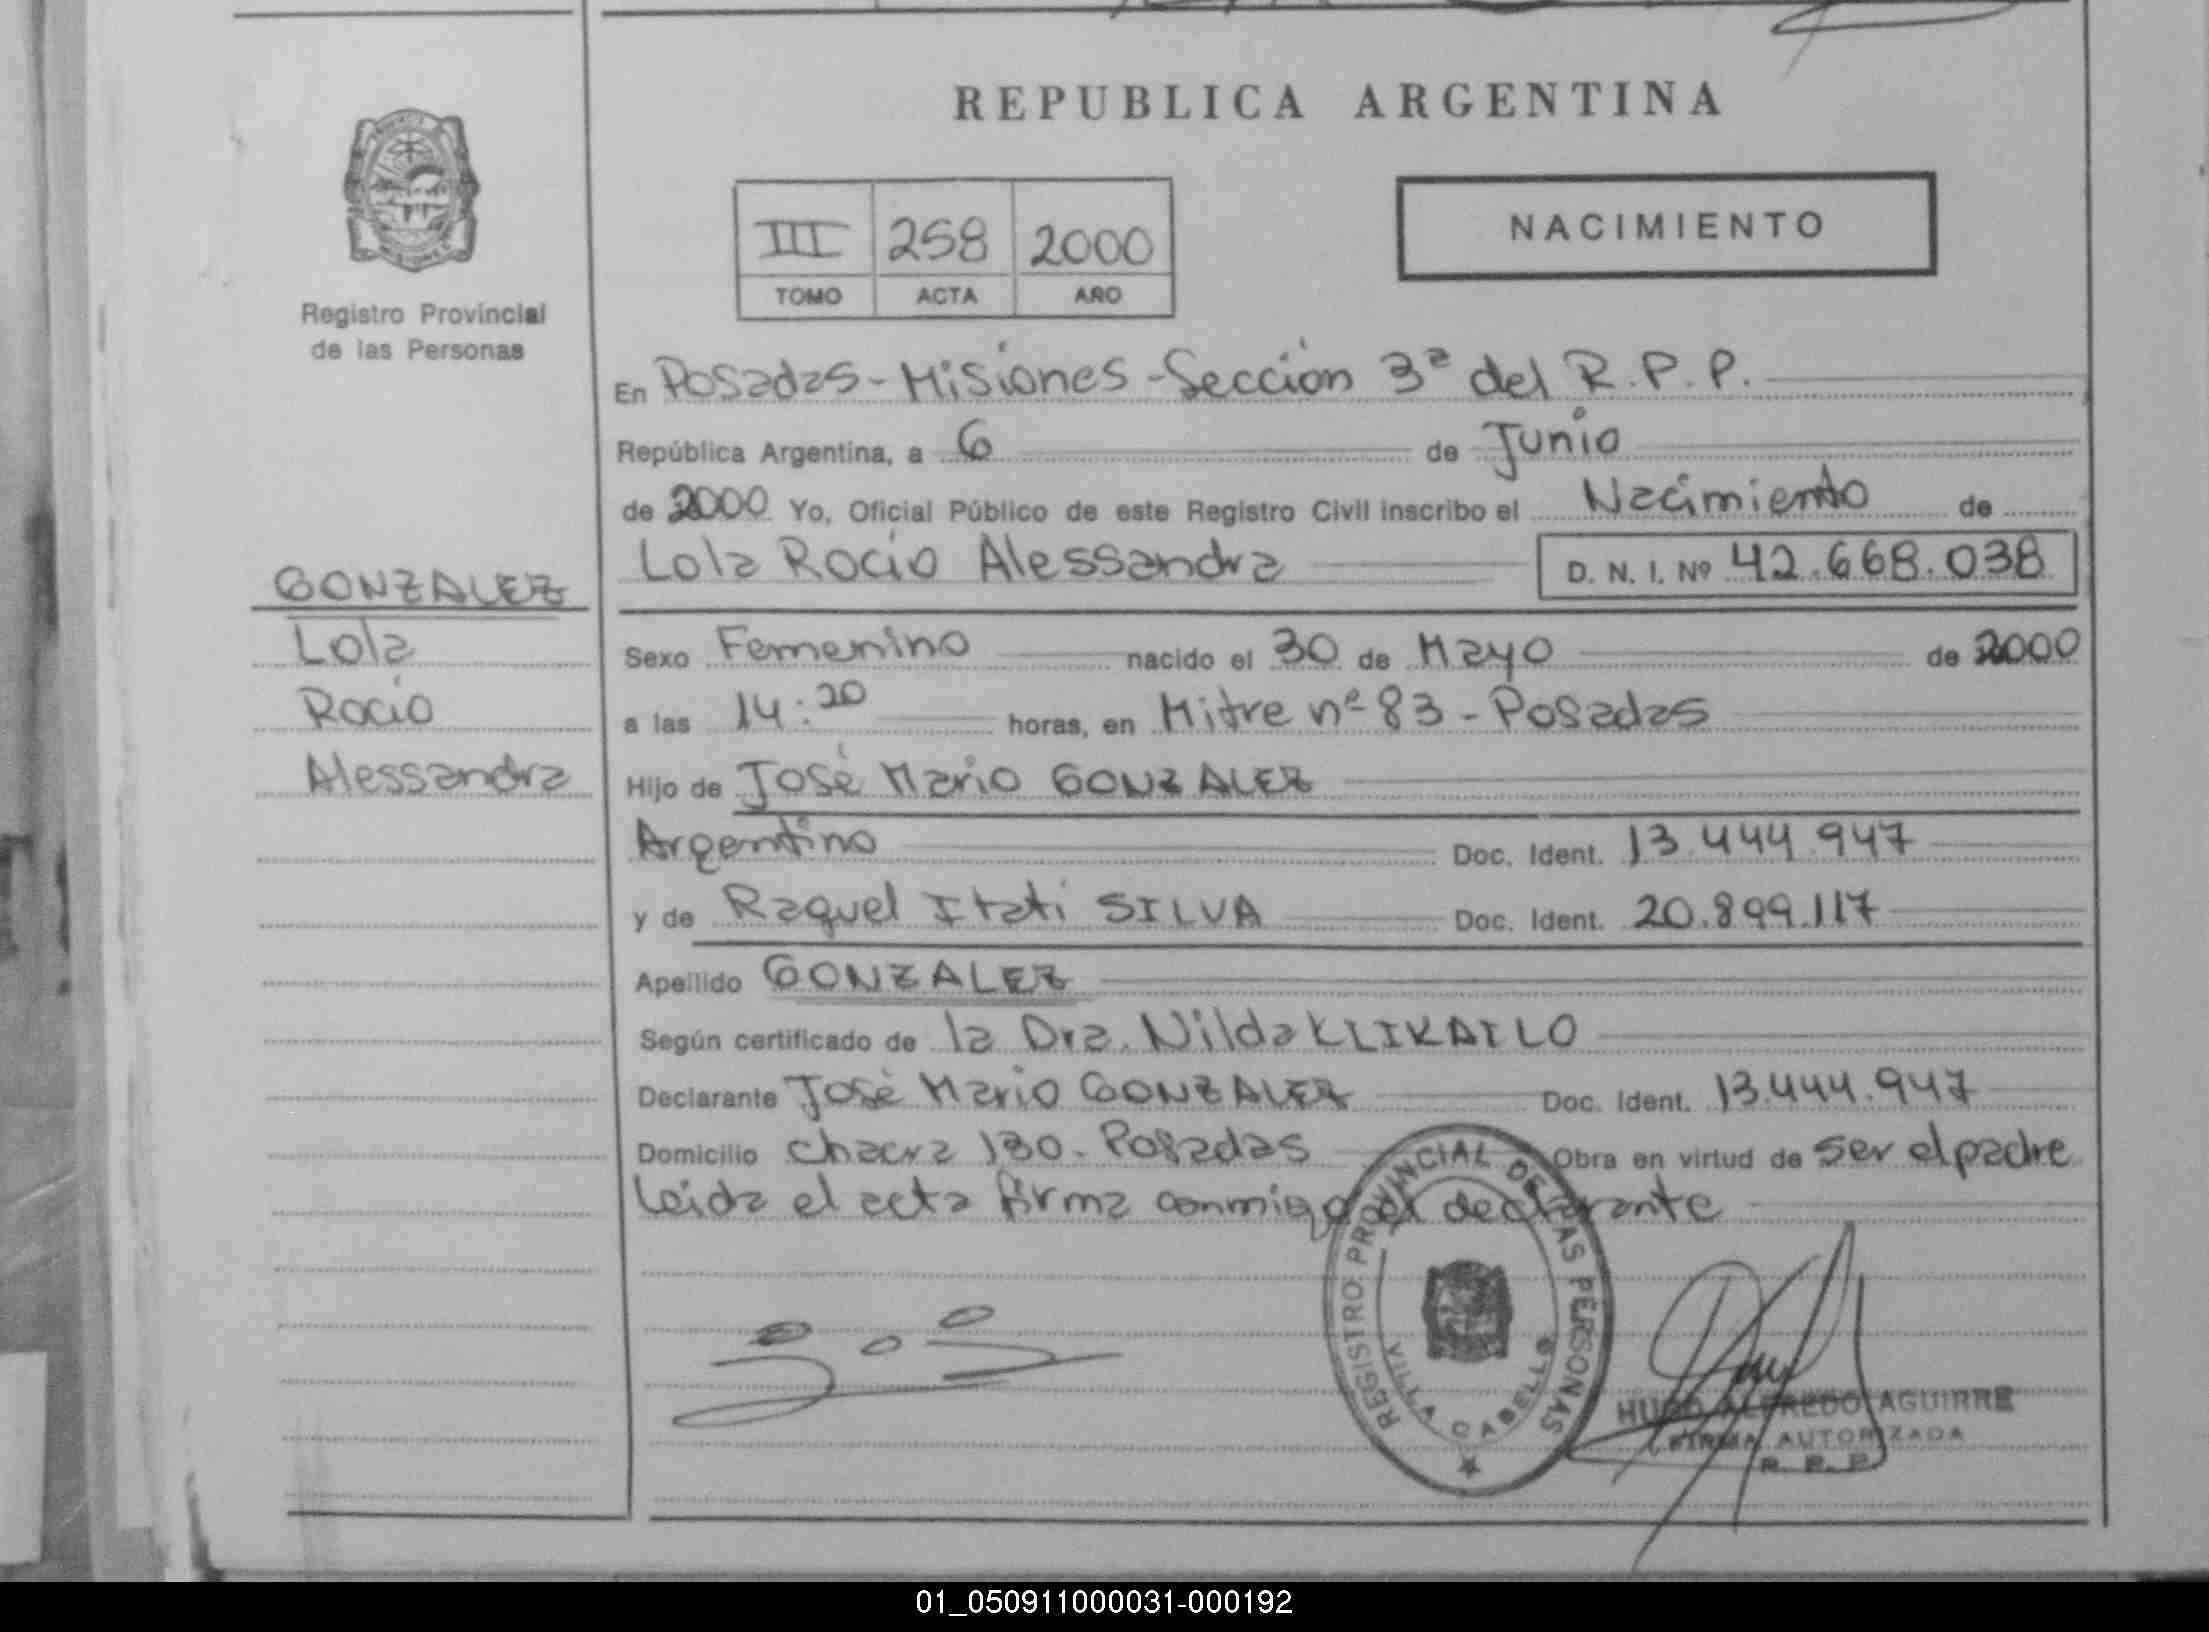 REPUBLICA ARGENTINA
III 258 2000
TOMO ACTA AÑO
NACIMIENTO
Registro Provincial
de las Personas
En Posadas - Misiones - Sección 3ª del R.P.P.
República Argentina, a 6 de Junio
de 2000 Yo, Oficial Público de este Registro Civil inscribo el Nacimiento de
Lola Rocio Alessandra D. N. I. Nº 42.668.038
GONZALEZ
Lola
Rocio
Alessandra
Sexo Femenino nacido el 30 de Mayo de 2000
a las 14:20 horas, en Mitre nº 83 - Posadas
Hijo de José Mario GONZALEZ
Argentino Doc. Ident. 13.444.947
y de Raquel Itati SILVA Doc. Ident. 20.899.117
Apellido GONZALEZ
Según certificado de la Dra. Nilda KLIKAILO
Declarante José Mario GONZALEZ Doc. Ident. 13.444.947
Domicilio chacra 130 - Posadas Obra en virtud de ser el padre
leida el acta firma conmigo el declarante
REGISTRO PROVINCIAL DE LAS PERSONAS
VILLA CABELLO
HUGO ALFREDO AGUIRRE
FIRMA AUTORIZADA
R. P. P.
01_050911000031-000192